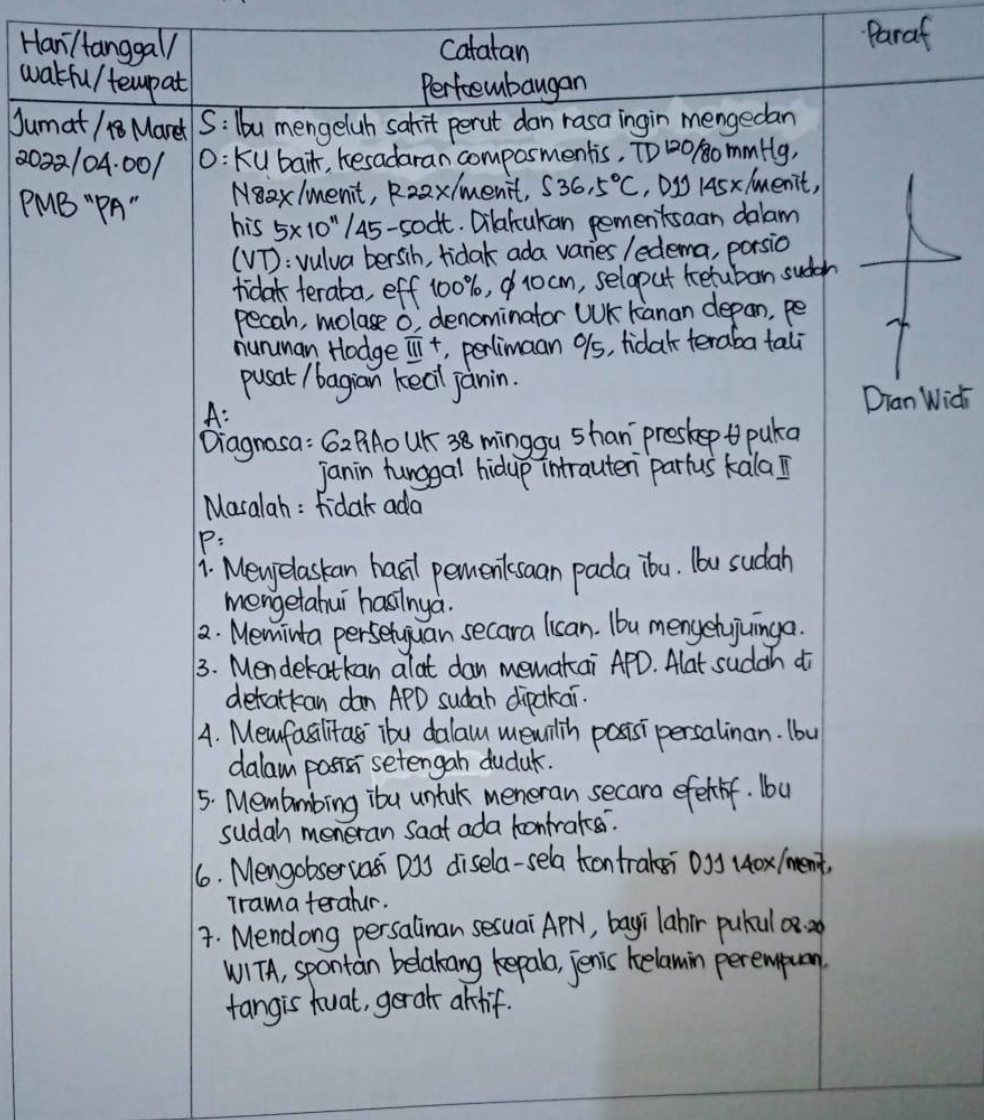 Hari/tanggal/
waktu/tempat
Catatan
Perkembangan
Paraf
Jumat/18 Maret
2022/04.00/
PMB "PA"
S: Ibu mengeluh sakit perut dan rasa ingin mengedan
O: KU baik, kesadaran composmentis, TD 120/80 mmHg,
N82x/menit, R22x/menit, S36,5°C, DJJ 145x/menit,
his 5x10"/45-50dt. Dilakukan pemeriksaan dalam
(VT): vulva bersih, tidak ada varies/edema, porsio
tidak teraba, eff 100%, ϕ 10 cm, selaput ketuban sudah
pecah, molase 0, denominator UUK kanan depan, pe
nurunan Hodge III +, perlimaan 0/5, tidak teraba tali
pusat/bagian kecil janin.
A:
Diagnosa: G2P1A0 UK 38 minggu 5 hari preskep U puka
janin tunggal hidup intrauteri partus kala II
Masalah: tidak ada
P:
1. Menjelaskan hasil pemeriksaan pada ibu. Ibu sudah
mengetahui hasilnya.
2. Meminta persetujuan secara lisan. Ibu menyetujuinya.
3. Mendekatkan alat dan memakai APD. Alat sudah di
dekatkan dan APD sudah dipakai.
4. Memfasilitasi ibu dalam memilih posisi persalinan. Ibu
dalam posisi setengah duduk.
5. Membimbing ibu untuk meneran secara efektif. Ibu
sudah meneran saat ada kontraksi.
6. Mengobservasi DJJ disela-sela kontraksi DJJ 140x/menit,
irama teratur.
7. Menolong persalinan sesuai APN, bayi lahir pukul 08.20
WITA, spontan belakang kepala, jenis kelamin perempuan,
tangis kuat, gerak aktif.
Dian Widi